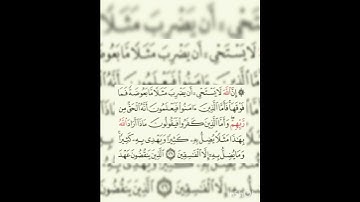 ۞ إِنَّ ٱللَّهَ لَا يَسۡتَحۡيِۦٓ أَن يَضۡرِبَ مَثَلٗا مَّا بَعُوضَةٗ فَمَا
فَوۡقَهَاۚ فَأَمَّا ٱلَّذِينَ ءَامَنُواْ فَيَعۡلَمُونَ أَنَّهُ ٱلۡحَقُّ مِن
رَّبِّهِمۡۖ وَأَمَّا ٱلَّذِينَ كَفَرُواْ فَيَقُولُونَ مَاذَآ أَرَادَ ٱللَّهُ
بِهَٰذَا مَثَلٗاۘ يُضِلُّ بِهِۦ كَثِيرٗا وَيَهۡدِي بِهِۦ كَثِيرٗاۚ
وَمَا يُضِلُّ بِهِۦٓ إِلَّا ٱلۡفَٰسِقِينَ ٢٦ ٱلَّذِينَ يَنقُضُونَ عَهۡدَ